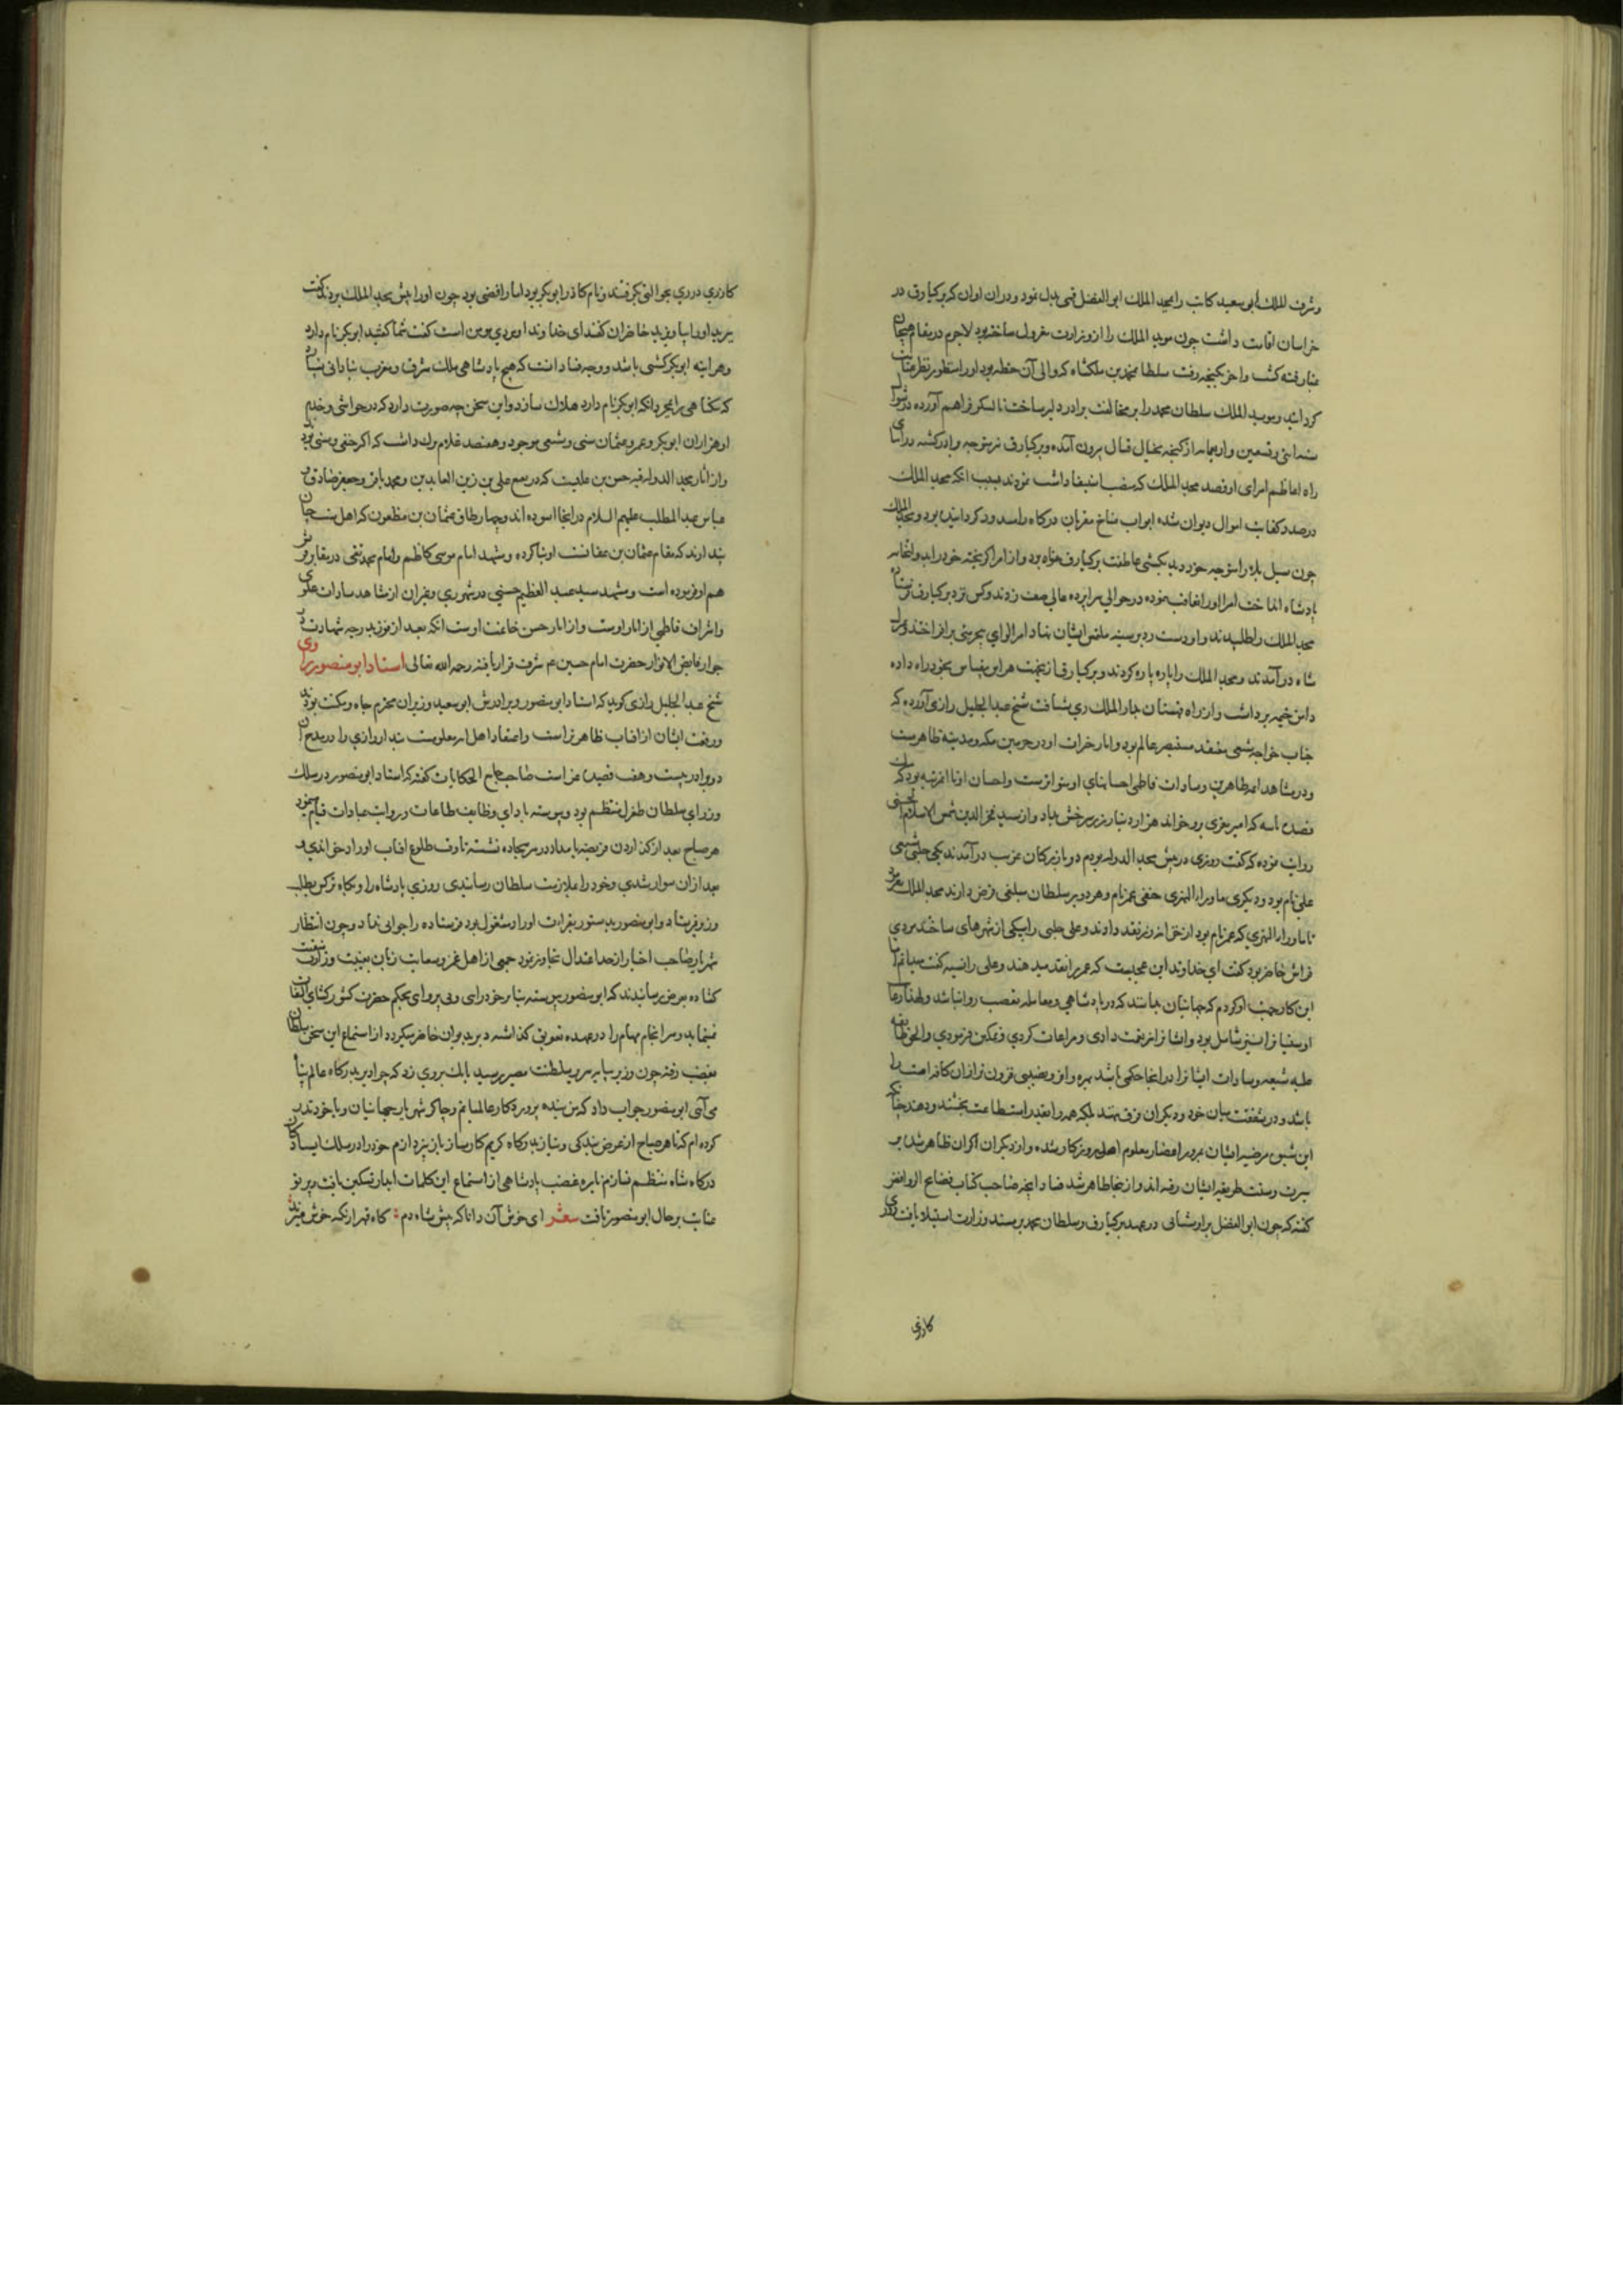 وشرف الملك ابو سعيد كاتب را بمجد الملك ابو الفضل قمى بدل نمود ودران اوان كه بركيارق در
خراسان اقامت داشت چون مويد الملك را از وزارت معزول ساخته بود لاجرم در مقام هيجان
غبار فتنه كشت واخر بكنجه رفت سلطان محمد بن ملكشاه كه والى آن خطه بود اورا منظور نظر عنايت
كردانيد ومويد الملك سلطان محمد را بر مخالفت برادر دلير ساخت تا لشكر فراهم آورده در شوال
سنه اثنى وتسعين واربعمايه از كنجه بخيال قتال بيرون آمده وبركيارق نيز متوجه برادر كشته در اثناى
راه اعاظم امراى او قصد مجد الملك كه منصب استيفا داشت نمودند بسبب انكه مجد الملك
درصدد كفايت اموال ديوان شده ابواب منافع مقربان دركاه را مسدود كردانيده بود ومجد الملك
چون سيل بلا را متوجه خود ديد بكشتى عاطفت بركيارق پناه برد واز امرا كريخته خود را بدولتخانه
پادشاه انداخت امرا اورا تعاقب نموده در حوالى سراپرده عالى صف زدند وكس نزد بركيارق فرستاده
مجد الملك را طلبيدند واو دست رد بر سينه ملتمس ايشان نهاد امرا لواى بيحرمتى برافراختند ودر
شاه درآمدند ومجد الملك را پاره پاره كردند وبركيارق از نهيب هراس بيقياس بخود راه داده
دامن خيمه برداشت واز راه قهستان بدار الملك رى شتافت شيخ عبد الجليل رازى آورده كه
جناب خواجه شيعى معتقد مستبصر عالم بود واثار خيرات او در حرمين مكه ومدينه ظاهرست
ودر مشاهد ائمه طاهرين وسادات فاطمى احسانهاى او متواترست واحسان او تا انمرتبه بود كه
قصيده لاميه كه امير معزى برو خواند هزار دينار زر سرخش بداد واز سيد فخر الدين شمس الاسلام الحسنى
روايت نموده كه كفت روزى در پيش مجد الدوله بوديم دو بازركان غريب درآمدند يكى حلبى شيعى
على نام بود وديكرى ماوراء النهرى حنفى عمر نام وهر دو بر سلطان مبلغى قرض دارند مجد الملك بفرمود
تا ماوراء النهرى كه عمر نام بود از خزانه زر نقد دادند وعلى حلبى را بيكى از شهرهاى ساختند مردى
فراش حاضر بود كفت اى خداوند اين عجبست كه عمر را نقد ميدهند وعلى را نسيه كفت ميدانم اما
اين كار جهت او كردم كه جهانيان بدانند كه در پادشاهى ومعامله تعصب روا نباشد ولهذا رعايت
او سنيانرا نيز شامل بود وايشانرا نعمت دادى ومراعات كردى وتمكين فرمودى والحق طايفه
عليه شيعه وسادات ايشانرا در انجا حكمى باشد بهره وافر ونصيبى فزون ترازان كافه امت را
باشد ودر شفقت ميان خود وديكران فرق نهند بلكه همه را بقدر استطاعت بخشند ودهند چنانكه
اين شيوه مرضيه ايشان بمرور اعصار معلوم اهل روزكار شده واز ديكران اكران ظاهر شد بر
سيرت وسنت طريقه ايشان رفته اند واز ينجا ظاهر شد فساد انچه صاحب كتاب فضايح الروافض
كفته كه چون ابو الفضل براوستانى در عهد بركيارق وسلطان محمد بر مسند وزارت استيلا يافت روزى
كازرى
كازرى دزدى بحوالى بكرفتند ونام كازر ابو بكر بود اما رافضى بود چون اورا پيش مجد الملك بردند كفت
ببريد اورا بياويزيد حاضران كفتند اى خداوند او مردى مومن است كفت شما كفتيد ابو بكر نام دارد
وهر اينه ابو بكر كشتنى باشد ووجه فساد انست كه هيچ پادشاهى ملك شرق وغرب بنادانى نباشد
كه بيكناهى را بمجرد انكه ابو بكر نام دارد هلاك سازد واين سخن چه صورت دارد كه در حواشى وخدم
او هزاران ابو بكر وعمر وعثمان سنى وشيعى موجود وهفصد غلام ترك داشت كه اكثر حنفى وسنى بودند
واز آثار مجد الدوله قبه حسن بن عليست كه در بقيع على بن زين العابدين ومحمد باقر وجعفر صادق و
عباس عبد المطلب عليهم السلام در انجا اسوده اند وچهار طاق عثمان بن مظعون كه اهل سنت چنان
پندارند كه مقام عثمان بن عفانست او بنا كرده ومشهد امام موسى كاظم وامام محمد تقى در مقابر قريش
هم او فرموده است ومشهد سيد عبد العظيم حسنى در شهر رى وغيران از مشاهد سادات علوى
واشراف فاطمى از اثار اوست واز اثار حسن خاتمت اوست انكه بعد از فوز بدرجه شهادت در
جوار فايض الانوار حضرت امام حسين ع شرف قرار يافته رحمه الله تعالى استاد ابو منصور راوى
شيخ عبد الجليل رازى كويد كه استاد ابو منصور وبرادرش ابو سعيد وزيران محترم جاه ومكنت بودند
ورفعت ايشان از افتاب ظاهر تراست واعتقاد اهل او معلومست بندار رازى را در مدح آن
دو برادر بيست وهفت قصيده غراست صاحب جامع الحكايات كفته كه استاد ابو منصور در سلك
وزراى سلطان طغرل منتظم بود وپيوسته باداى وظايف طاعات ورواتب عبادات قيام مينمود
هر صباح بعد از كذاردن فريضه بامداد در سر سجاده نشسته تا وقت طلوع افتاب اوراد خواندى و
بعد ازان سوار شدى وخود را بملازمت سلطان رسانيدى روزى پادشاه را وبكاه تركس بطلب
وزير فرستاد وابو منصور بدستور بقراءت اوراد مشغول بود فرستاده را جوابى نداد وچون انتظار
شهريار صاحب اختيار از حد اعتدال تجاوز نمود جمعى از اهل غمز وسعايت زبان بغيبت وزارت منقبت
كشاده بعرض رسانيدند كه ابو منصور پيوسته بنابر خود رايى وبى پروايى بحكم حضرت كشور كشاى التفات
نمينمايد وسرانجام مهام را در عهده تعويق كذاشته دير بديوان حاضر ميكردد از استماع اين سخن سلطان
بغضب رفته چون وزير بپايه سرير سلطنت مصير رسيد بانك بروى زد كه چرا دير بدركاه عالم پناه
مى آئى ابو منصور جواب داد كه من بنده پروردكار عالميانم وچاكر شهريار جهانيان وبا خود نذر
كرده ام كه تا هر صباح از عرض بندكى ونياز بدركاه كريم كارساز باز نپردازم خود را در سلك ايستادكان
دركاه شاه منتظم نسازم نايره غضب پادشاهى از استماع اين كلمات ابدار تسكين يافت وپرتو
عنايت بر حال ابو منصور تافت شعر اى خوش آن دانا كه پيش شاه دم : كاه قهر از نكته خوش ميزند